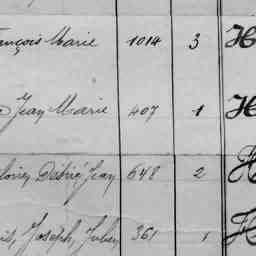 ançois Marie 1014 3 H
Jean Marie 407 1 H
Désiré Jean 648 2 H
Joseph, Julien 361 1 H